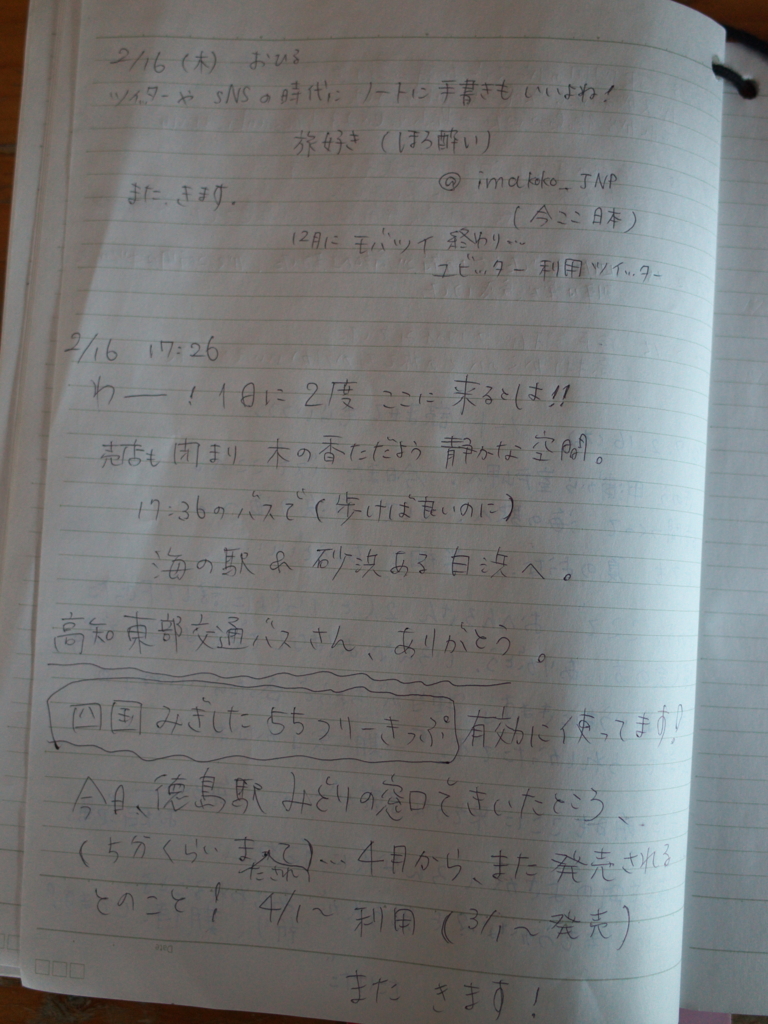 2/16 (木) おひる
ツイッターや SNSの時代に ノートに手書きもいいよね!
旅好き (ほろ酔い)
@ imakoko_JNP
また、きます。
(今ここ日本)
12月に モバツイ 終わり…
ユビッター 利用ツイッター
2/16 17:26
わー! 1日に2度 ここに 来るとは!!
売店も 閉まり 木の香ただよう 静かな空間。
17:36のバスで (歩けば良いのに)
海の駅 & 砂浜ある 白浜へ。
高知東部交通バスさん、ありがとう。
四国みぎした55フリーきっぷ 有効に使ってます!
今日、徳島駅みどりの窓口できいたところ、
(5分くらいまたされて)…4月から、また 発売される
とのこと! 4/1~ 利用 (3/1~発売)
また きます!